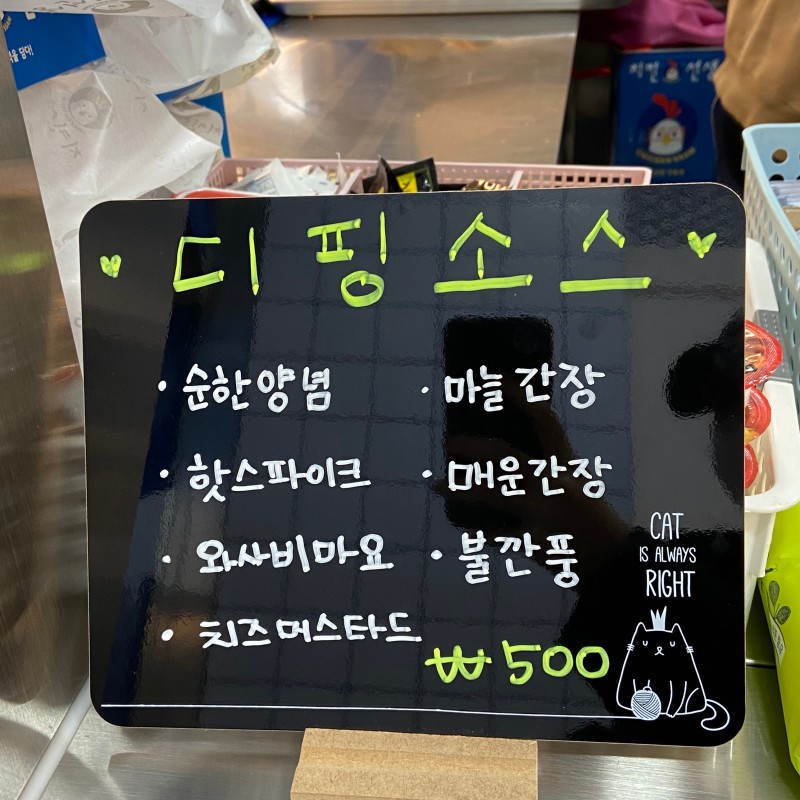 디핑소스
· 순한양념
· 마늘간장
· 핫스파이크
· 매운간장
· 와사비마요
· 불깐풍
· 치즈머스타드
₩500
CAT
IS ALWAYS
RIGHT